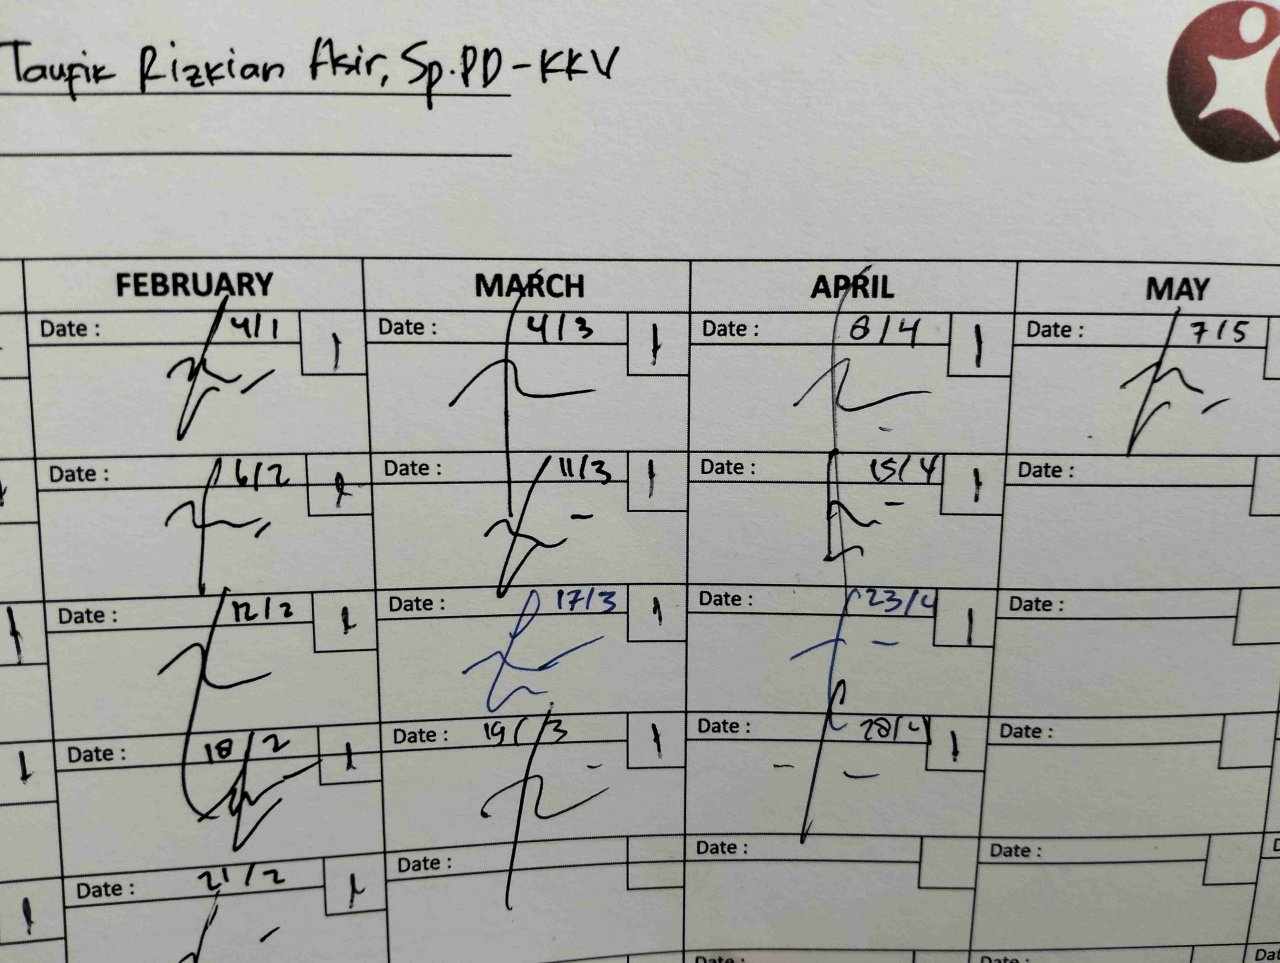 Taufik Rizkian Asir, Sp.PD-KKV
FEBRUARY MARCH APRIL MAY
Date : 4/1 1 Date : 4/3 1 Date : 8/4 1 Date : 7/5
Date : 6/2 1 Date : 11/3 1 Date : 15/4 1 Date :
Date : 12/2 1 Date : 17/3 1 Date : 23/4 1 Date :
Date : 18/2 1 Date : 19/3 1 Date : 28/4 1 Date :
Date : 21/2 1 Date : Date : Date :
Date : Date :